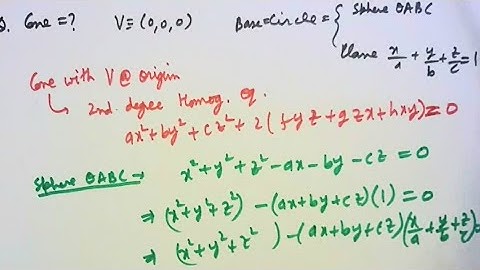 Q. Cone = ? V ≡ (0,0,0) Base = Circle = { Sphere OABC
Plane x/a + y/b + z/c = 1
Cone with V @ origin
↳ 2nd degree Homog. eq.
ax² + by² + cz² + 2(fyz + gzx + hxy) = 0
Sphere OABC → x² + y² + z² - ax - by - cz = 0
⇒ (x² + y² + z²) - (ax + by + cz)(1) = 0
⇒ (x² + y² + z²) - (ax + by + cz)(x/a + y/b + z/c)